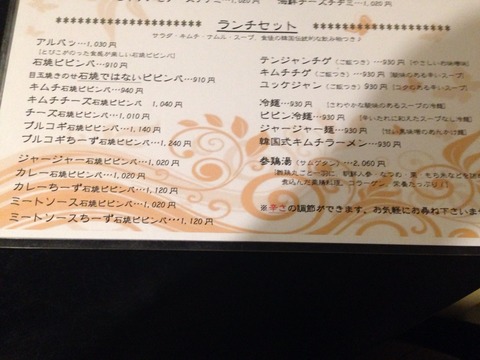 海鮮チーズチヂミ…1,080円
ランチセット
サラダ・キムチ・ナムル・スープ、食後の韓国伝統的な飲み物つき♪
アルパッ…1,030円
[とびこがのった食感が楽しい石焼ビビンバ]
石焼ビビンバ…910円
目玉焼きのせ石焼ではないビビンバ…910円
キムチ石焼ビビンバ…940円
キムチチーズ石焼ビビンバ 1,040円
チーズ石焼ビビンバ…1,010円
プルコギ石焼ビビンバ…1,140円
プルコギちーず石焼ビビンバ…1,240円
ジャージャー石焼ビビンバ…1,020円
カレー石焼ビビンバ…1,020円
カレーちーず石焼ビビンバ…1,120円
ミートソース石焼ビビンバ…1,020円
ミートソースちーず石焼ビビンバ…1,120円
テンジャンチゲ(ご飯つき)…930円[やさしいお味噌味]
キムチチゲ(ご飯つき)…930円[酸味のある辛いスープ]
ユッケジャン(ご飯つき)…930円[コクのある辛いスープ]
冷麺…930円[さわやかな酸味のあるスープの冷麺]
ビビン冷麺…930円[辛いたれに和えたスープなし冷麺]
ジャージャー麺…930円[甘い黒味噌のあんかけ麺]
韓国式キムチラーメン…930円
参鶏湯(サムゲタン)…2,060円
煮込んだ薬膳料理。コラーゲン、栄養たっぷり!]
※辛さの調節ができます。お気軽にお尋ね下さいま